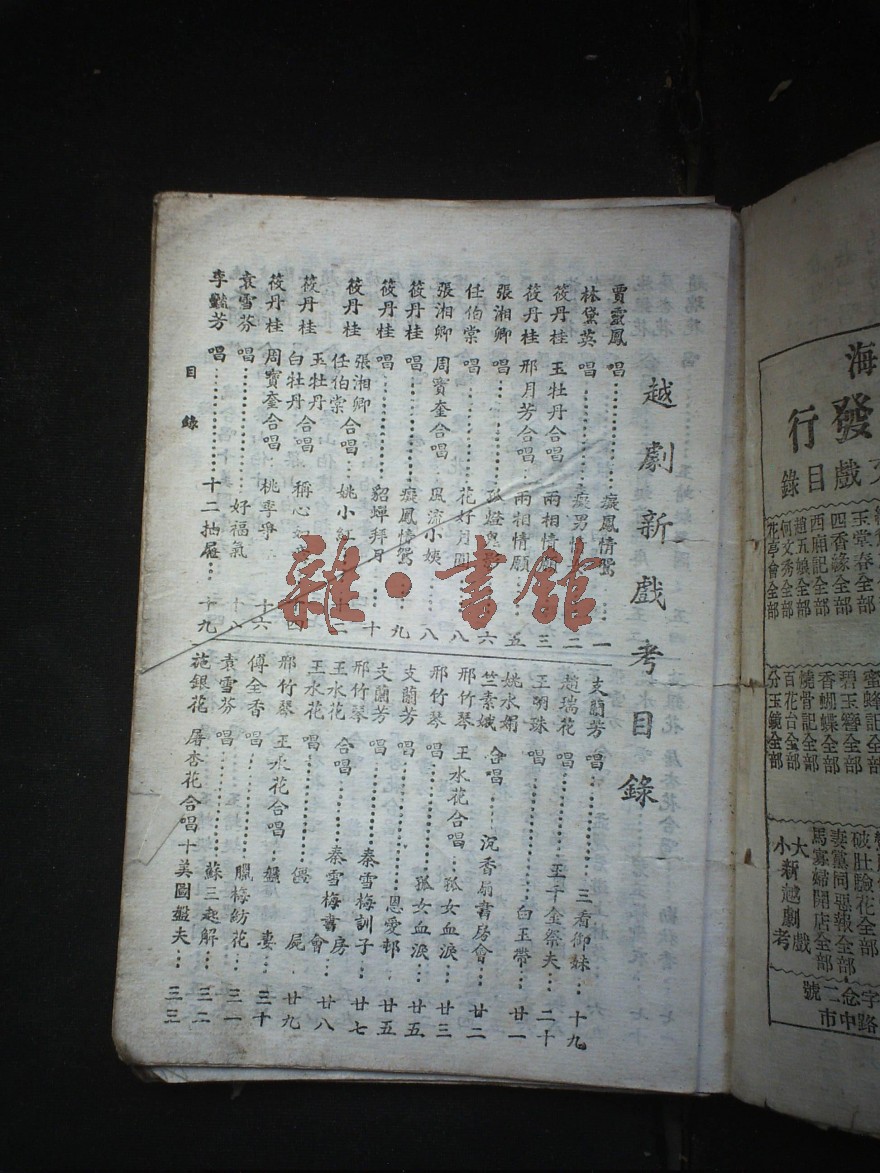 越劇新戲考目錄
賈靈鳳 唱 癡鳳情鴛 一
林黛英 唱 癡男情 二
筱丹桂 玉牡丹 合唱 兩相情願 三
筱丹桂 邢月芳 合唱 兩相情願 五
張湘卿 唱 孤燈 六
任伯棠 唱 花好月圓 八
張湘卿 周寶奎 合唱 風流小姨 八
筱丹桂 唱 癡鳳情鴛 九
筱丹桂 唱 貂蟬拜月 十
筱丹桂 張湘卿 任伯棠 合唱 姚小紅 十二
筱丹桂 玉牡丹 白牡丹 合唱 稱心如意 十四
筱丹桂 周寶奎 合唱 桃李爭 十六
袁雪芬 唱 好福氣 十八
李豔芳 唱 十二抽屜 十九
支蘭芳 唱 三看御妹 十九
趙瑞花 唱 王千金祭夫 二十
王明珠 唱 白玉帶 廿一
姚水娟 竺素娥 合唱 沉香扇書房會 廿二
邢竹琴 王水花 合唱 孤女血淚 廿三
邢竹琴 唱 孤女血淚 廿五
支蘭芳 唱 恩愛邨 廿五
支蘭芳 唱 秦雪梅訓子 廿七
邢竹琴 王水花 合唱 秦雪梅書房會 廿八
王水花 唱 僵屍 廿九
邢竹琴 王水花 合唱 盤妻 三十
傅全香 唱 臘梅紡花 三一
袁雪芬 唱 蘇三起解 三二
施銀花 屠杏花 合唱 十美圖盤夫 三三
目錄
雜·書館
海
發行
戲目錄
玉堂春全部
四香緣全部
西廂記全部
趙五娘全部
何文秀全部
花亭會全部
蜜蜂記全部
碧玉簪全部
香蝴蝶全部
燒骨記全部
百花台全部
分玉鏡全部
破肚驗花全部
妻黨同惡報全部
馬寡婦開店全部
大戲
小新越劇考
字念二號
路中市